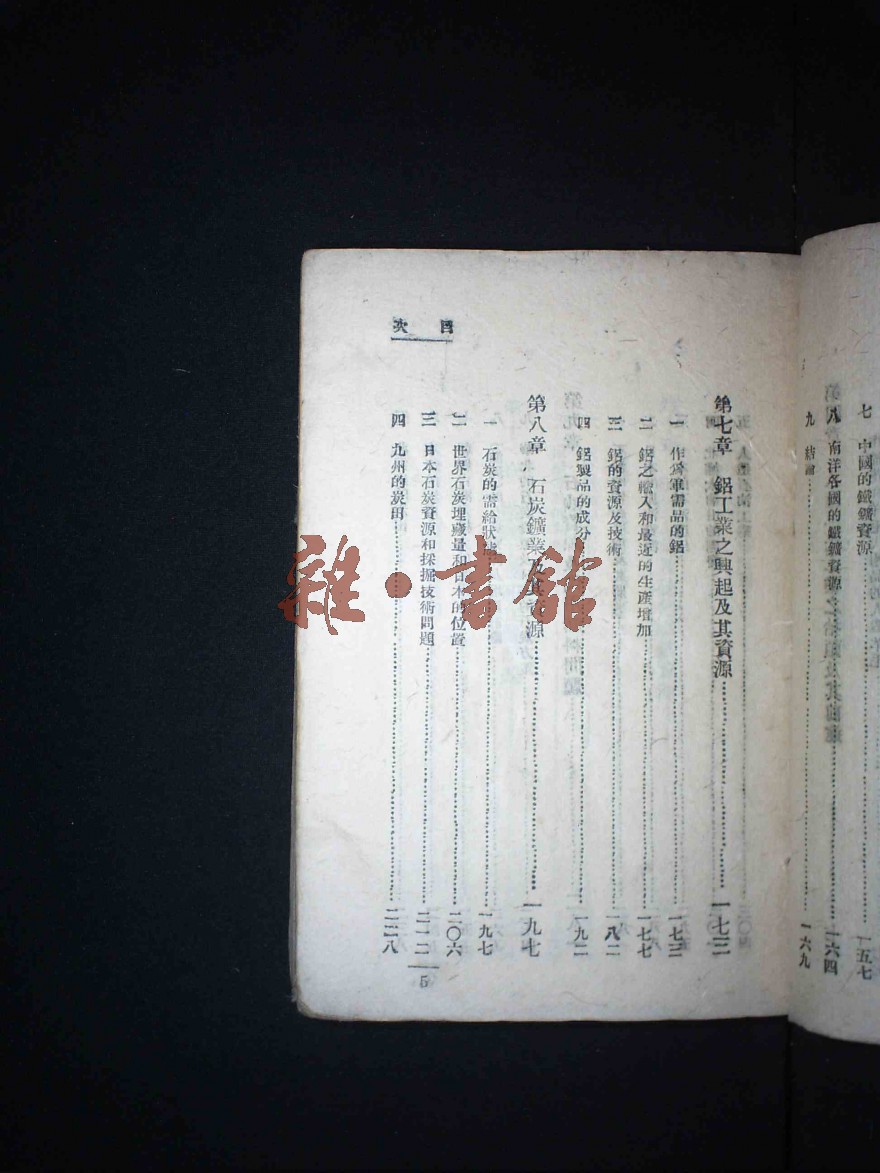 七　中國的鐵鑛資源……一五七
八　南洋各國的鐵鑛資源……一六四
九　結論……一六九
目　次
第七章　鋁工業之興起及其資源……一七三
一　作爲軍需品的鋁……一七三
二　鋁之輸入和最近的生產增加……一七七
三　鋁的資源及技術……一八二
四　鋁製品的成分……一九二
第八章　石炭鑛業及其資源……一九七
一　石炭的需給狀態……一九七
二　世界石炭埋藏量和日本的位置……二〇六
三　日本石炭資源和採掘技術問題……二一二
四　九州的炭田……二二八
5
雜·書館